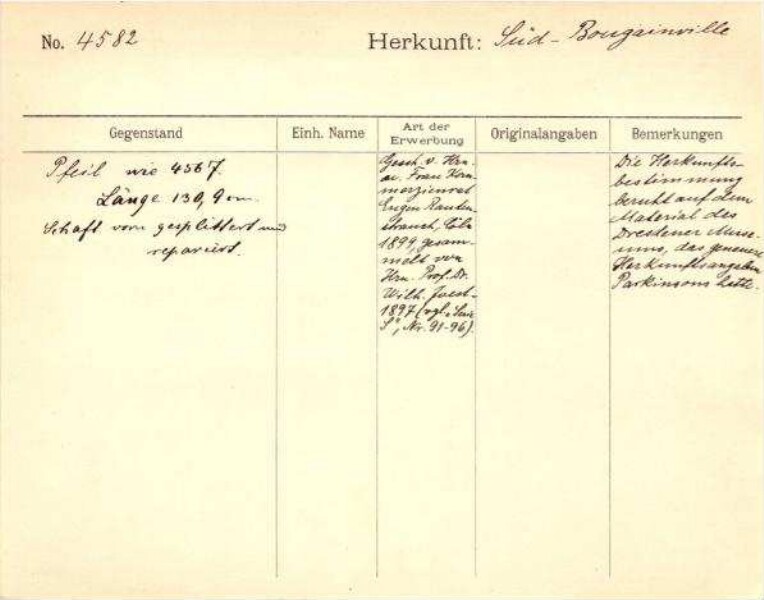 No. 4582
Herkunft: Süd-Bougainville
Gegenstand
Einh. Name
Art der
Erwerbung
Originalangaben
Bemerkungen
Pfeil wie 4567.
Länge 130,9 cm.
Schaft vorn gesplittert und
repariert.
Gesch. v. Hrn.
u. Frau Kom-
merzienrat
Eugen Rauten-
strauch, Cöln
1899, gesam-
melt von
Hrn. Prof. Dr.
Wilh. Joest
1897 (vgl.
S", Nr. 91-96).
Die Herkunfts-
bestimmung
beruht auf dem
Material des
Dresdener Muse-
ums, das genauere
Herkunftsangaben
Parkinsons hatte.